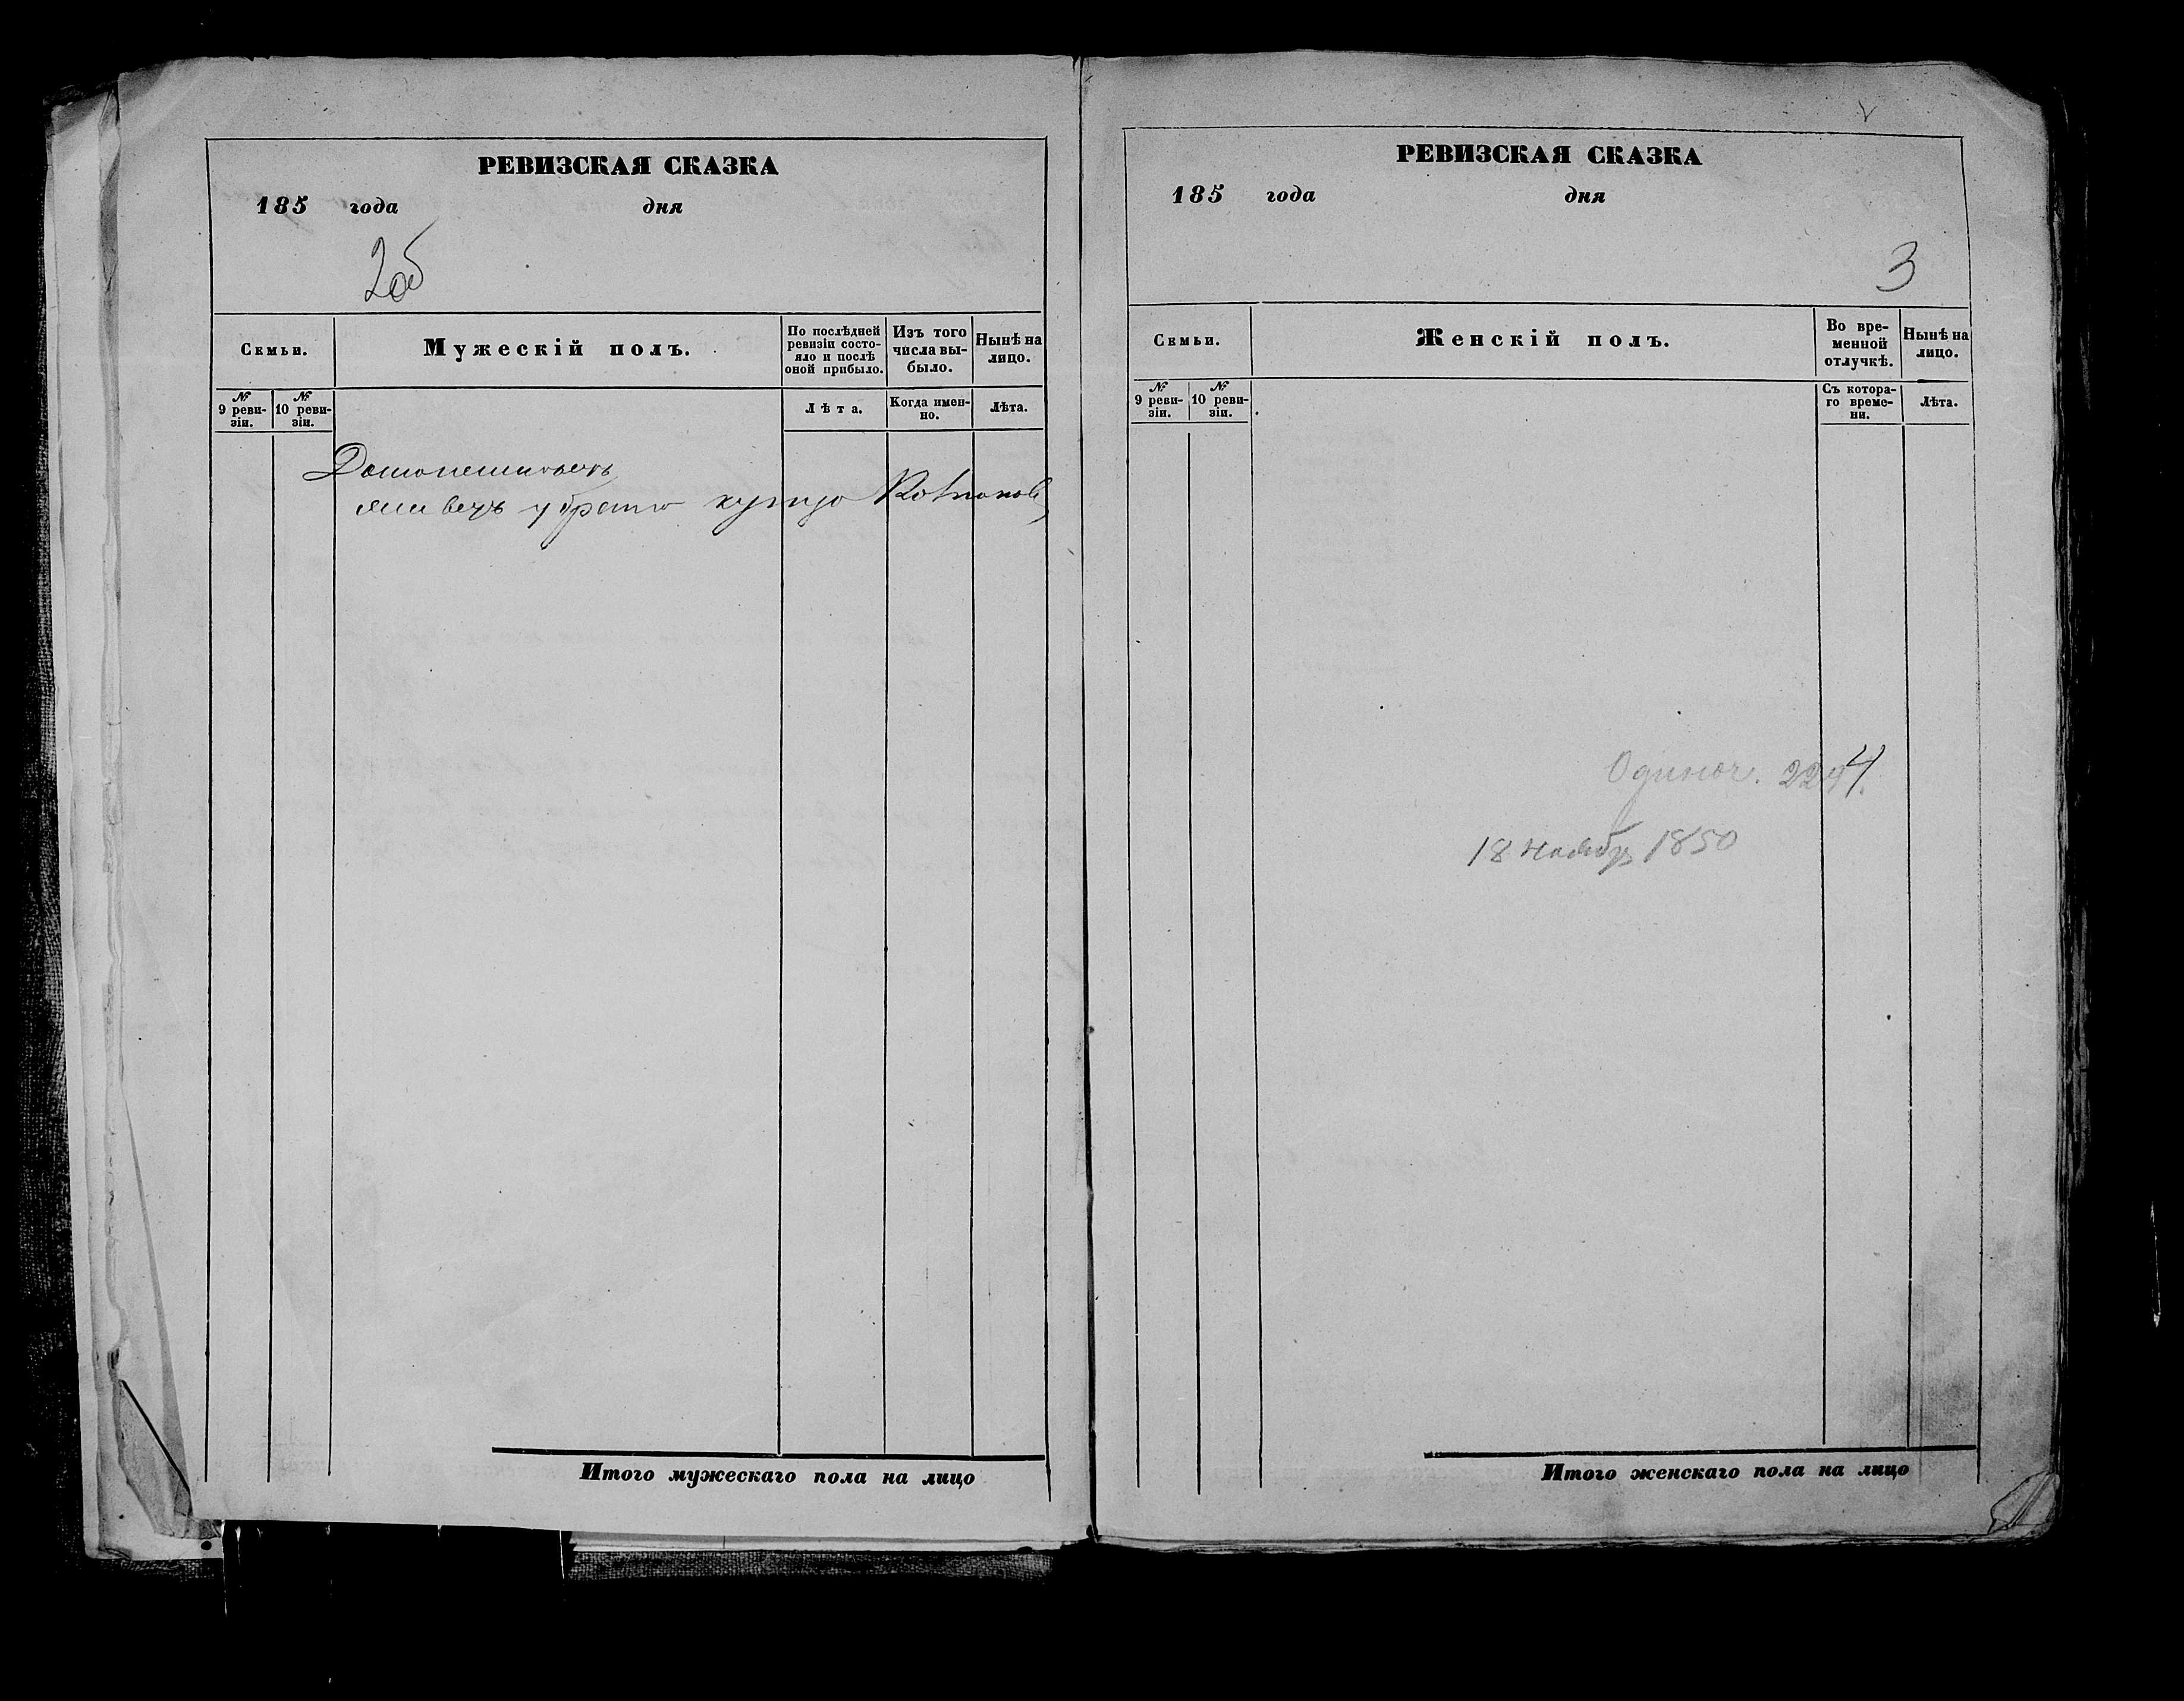 РЕВИЗСКАЯ СКАЗКА
185 года дня
2об
Семьи.
Мужескій полъ.
По послѣдней ревизіи состояло и послѣ оной прибыло.
Изъ того числа выбыло.
Нынѣ на лицо.
№ 9 ревизіи.
№ 10 ревизіи.
Лѣта.
Когда именно.
Лѣта.
купца
Итого мужескаго пола на лицо
РЕВИЗСКАЯ СКАЗКА
185 года дня
3
Семьи.
Женскій полъ.
Во временной отлучкѣ.
Нынѣ на лицо.
№ 9 ревизіи.
№ 10 ревизіи.
Съ котораго времени.
Лѣта.
18 Ноябр 1850
Итого женскаго пола на лицо